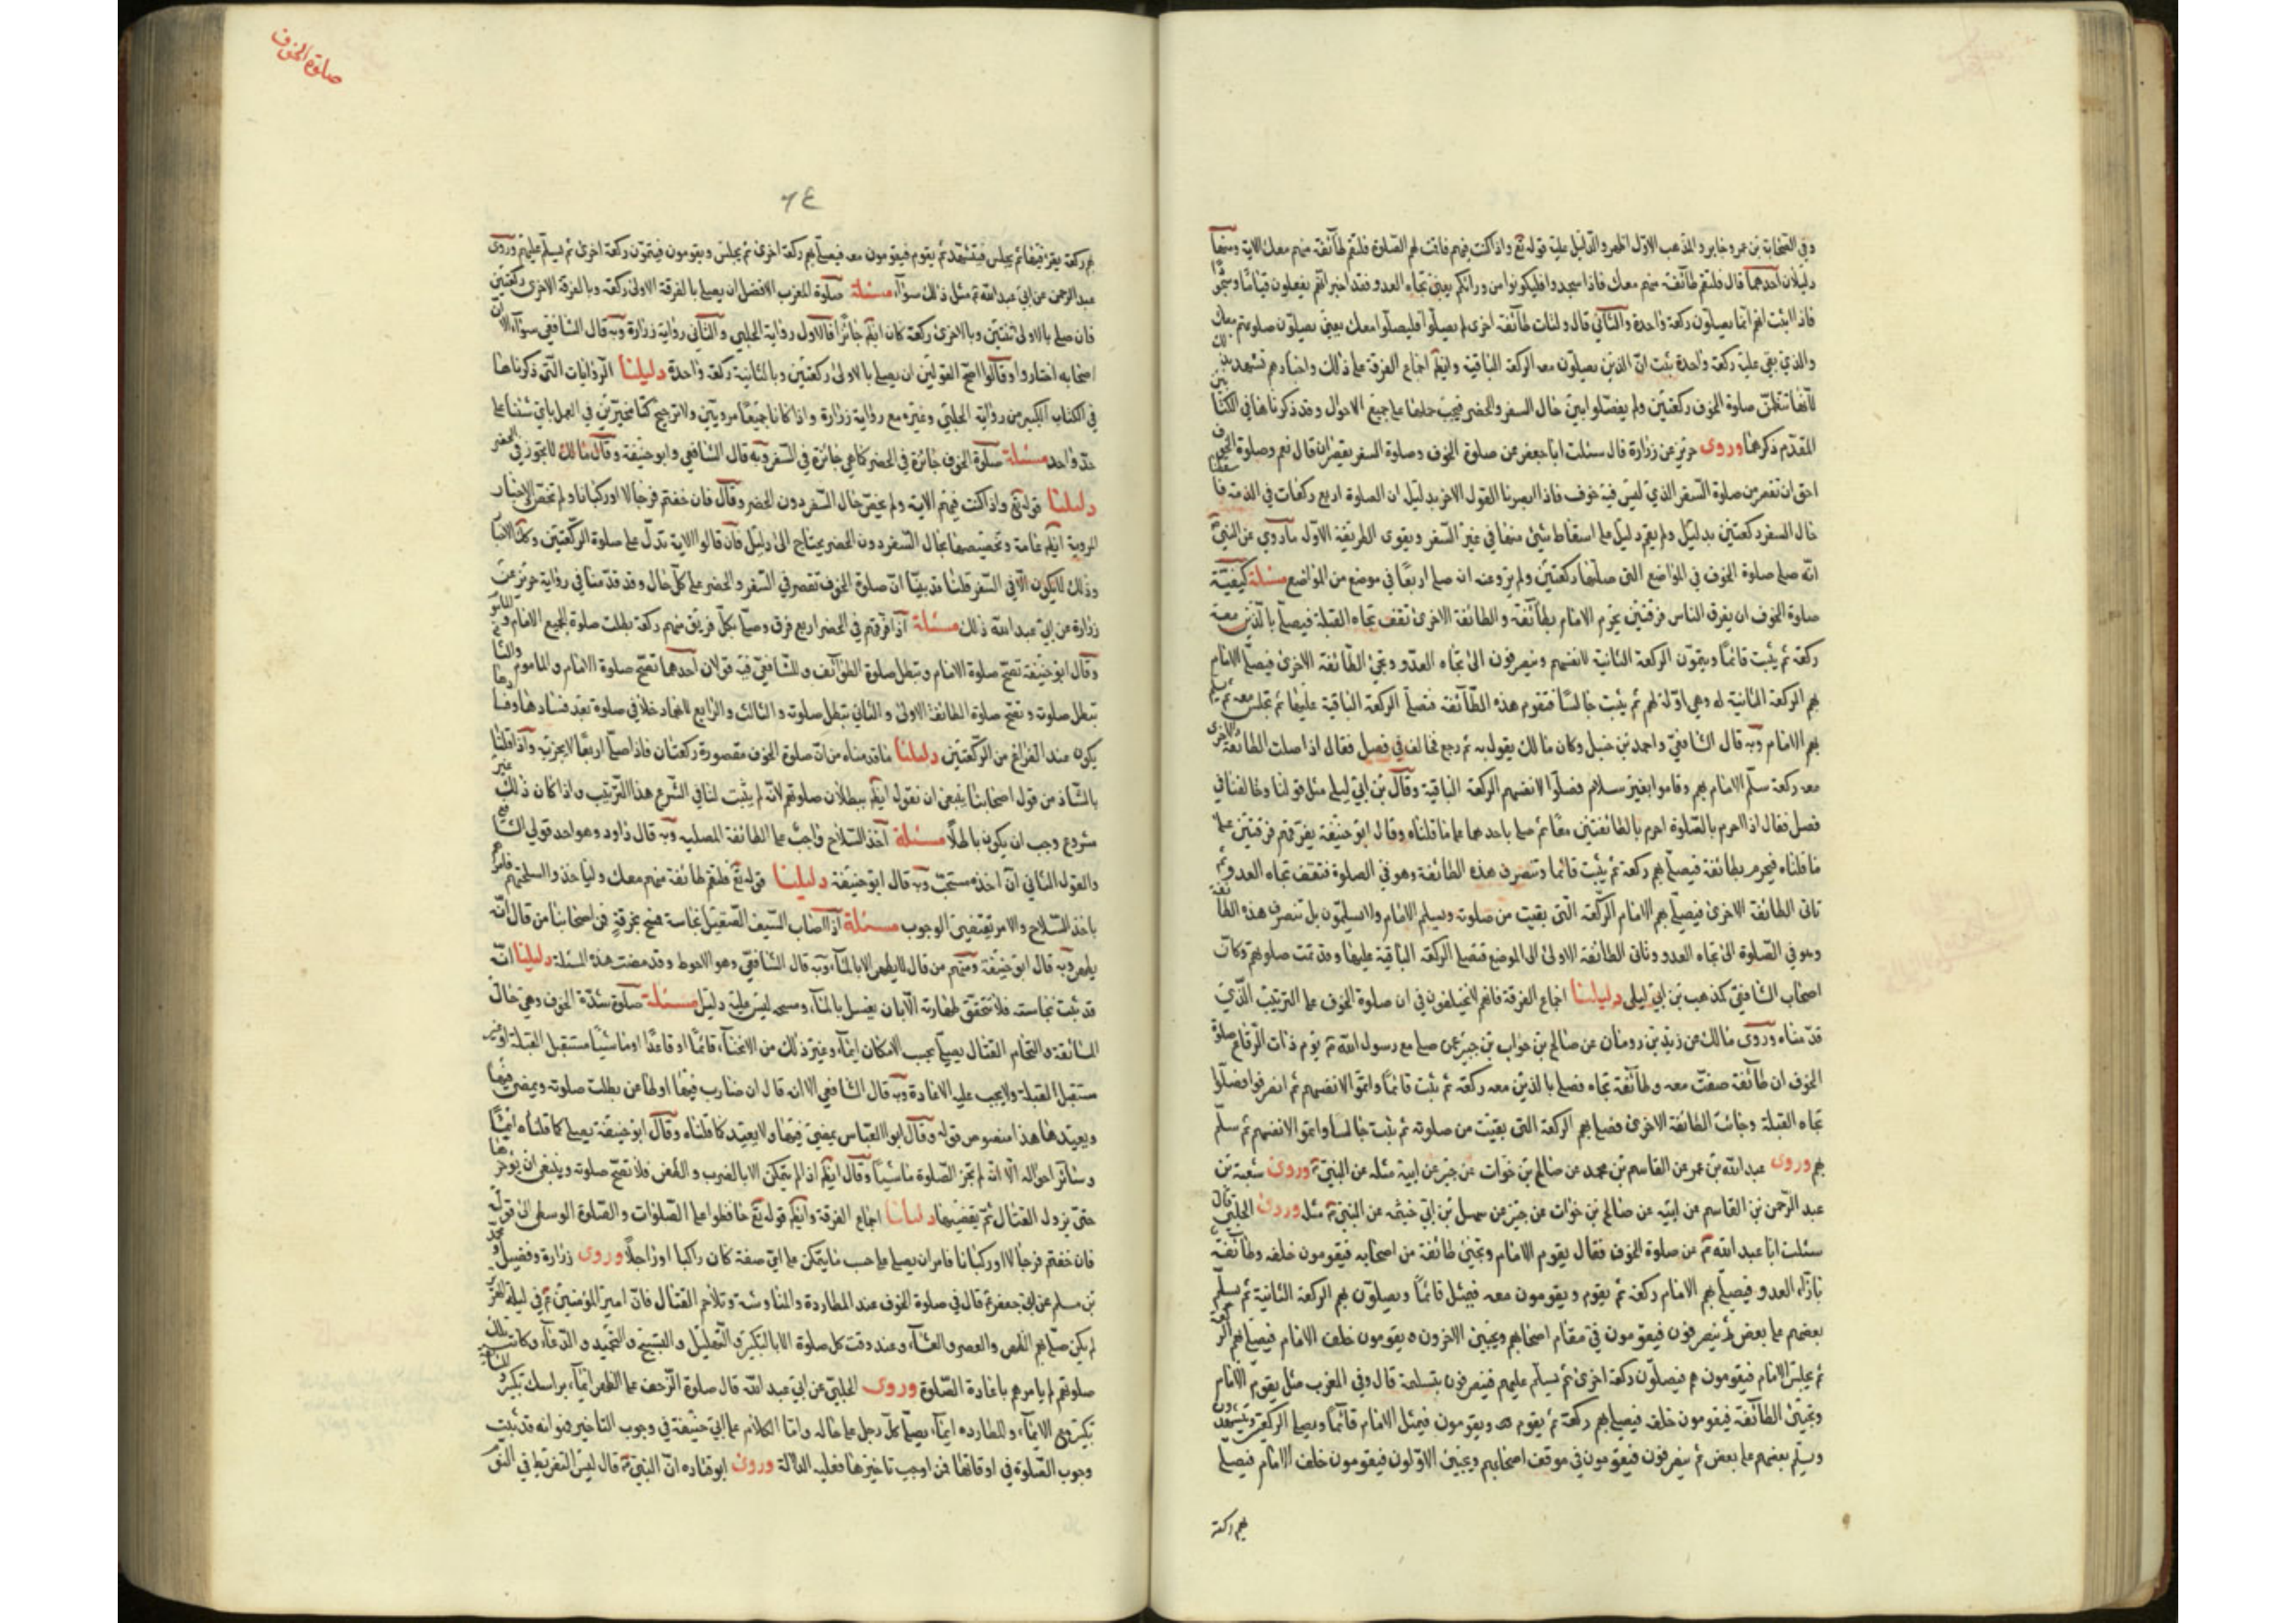 وفي الصحابة بن عمر وجابر والمذهب الاول اظهر والدليل عليه قوله تع واذا كنت فيهم فاقمت لهم الصلوة فلتقم طآئفة منهم معك الاية ومنها
دليلان احدهما قال فلتقم طآئفة منهم معك فاذا سجدوا فليكونوا من ورائكم يعني تجاه العدو فقد اخبر انهم يفعلون قياما وسجودا
فاذا اثبت انهم انما يصلون ركعة واحدة والثاني قال ولتات طآئفة اخرى لم يصلوا فليصلوا معك يعني يصلون صلوتهم معك
والذي بقي عليه ركعة واحدة ثبت ان الذين يصلون معه الركعة الباقية وايضا اجماع الفرقة على ذلك واخبارهم تشهد بذلك
لانها تتضمن صلوة الخوف ركعتين ولم يفصلوا بين حال السفر والحضر فيجب حملها على جميع الاحوال وقد ذكرناها في الكتاب
المقدم ذكرها وروى حريز عن زرارة قال سئلت ابا جعفر عن صلوة الخوف وصلوة السفر يقصران قال نعم وصلوة الخوف
احق ان تقصر من صلوة السفر الذي ليس فيه خوف فاذا ابصرنا القول الاخر بدليل ان الصلوة اربع ركعات في الذمة
حال السفر ركعتين بدليل ولم يقم دليل على اسقاط شيئ منها في غير السفر ويقوى الطريقة الاول ما روي عن النبي
انه صلى صلوة الخوف في المواضع التي صلاها ركعتين ولم يرو عنه ان صلى اربعا في موضع من المواضع مسئلة كيفية
صلوة الخوف ان يفرق الناس فرقتين يحرم الامام بطآئفة والطائفة الاخرى تقف تجاه القبلة فيصلى بالذين معه
ركعة ثم يثبت قائما ويتمون الركعة الثانية لانفسهم وينصرفون الى تجاه العدو وتجئ الطائفة الاخرى فيصلى الامام
بهم الركعة الثانية له وهي اولة لهم ثم يثبت جالسا فتقوم هذه الطآئفة فتصلى الركعة الباقية عليها ثم تجلس معه ثم يسلم
بهم الامام وبه قال الشافعي واحمد بن حنبل وكان مالك يقول به ثم رجع فخالف في فصل فقال اذا صلت الطائفة الاخرى
معه ركعة سلم الامام بهم وقاموا بغير سلام فصلوا لانفسهم الركعة الباقية وقال بن ابي ليلى مثل قولنا وخالفنا في
فصل فقال اذا احرم بالصلوة احرم بالطائفتين معا ثم صلى باحدهما على ما قلناه وقال ابو حنيفة يفرقهم فرقتين على
ما قلناه فيحرم بطائفة فيصلى بهم ركعة ثم يثبت قائما وتنصرف هذه الطائفة وهو في الصلوة فتقف تجاه العدو ثم
تاتى الطائفة الاخرى فيصلى بهم الامام الركعة التي بقيت من صلوته ويسلم الامام ولا يسلمون بل تنصرف هذه الطائفة
وهو في الصلوة الى تجاه العدو وتاتى الطائفة الاولى الى الموضع فتصلى الركعة الباقية عليها وقد تمت صلوتهم وكان
اصحاب الشافعي كمذهب بن ابي ليلى دليلنا اجماع الفرقة فانهم لا يختلفون في ان صلوة الخوف على الترتيب الذي
قدمناه وروى مالك عن زيد بن رومان عن صالح بن خوات بن جبير عمن صلى مع رسول الله يوم ذات الرقاع صلوة
الخوف ان طآئفة صفت معه وطآئفة تجاه فصلى بالذين معه ركعة ثم ثبت قائما واتموا لانفسهم ثم انصرفوا فصلوا
تجاه القبلة وجائت الطائفة الاخرى فصلى بهم الركعة التي بقيت من صلوته ثم ثبت جالسا واتموا لانفسهم ثم سلم
بهم وروى عبد الله بن عمر عن القاسم بن محمد عن صالح بن خوات عن جبير عن ابيه مثله عن النبي وروى شعبة بن
عبد الرحمن بن القاسم عن ابيه عن صالح بن خوات عن جبير عن سهل بن ابي خيثمه عن النبي مثله وروى الحلبي قال
سئلت ابا عبد الله عن صلوة الخوف فقال يقوم الامام وتجئ طائفة من اصحابه فيقومون خلفه وطآئفة
بازآء العدو فيصلى بهم الامام ركعة ثم يقوم ويقومون معه فيمثل قائما ويصلون هم الركعة الثانية ثم يسلم
بعضهم على بعض ثم ينصرفون فيقومون في مقام اصحابهم ويجئ الاخرون يقومون خلف الامام فيصلى بهم الركعة
ثم يجلس الامام فيقومون هم فيصلون ركعة اخرى ثم يسلم عليهم فينصرفون بتسليمه قال وفي المغرب مثل يقوم الامام
وتجئ الطآئفة فيقومون خلفه فيصلى بهم ركعة ثم يقوم ويقومون فيمثل الامام قائما ويصلى الركعتين ويتشهدون
ويسلم بعضهم على بعض ثم ينصرفون فيقومون في موقف اصحابهم ويجئ الاولون فيقومون خلف الامام فيصلى
بهم ركعة
صلوة الخوف
٦٤
بهم ركعة يقرء فيها ثم يجلس فيتشهد ثم يقوم فيقومون معه فيصلى بهم ركعة اخرى ثم يجلس ويقومون فيتمون ركعة اخرى ثم يسلم عليهم وروى
عبد الرحمن عن ابي عبد الله مثل ذلك سوآء مسئلة صلوة المغرب الافضل ان يصلى بالفرقة الاولى ركعة وبالفرقة الاخرى ركعتين
فان صلى بالاولى ثنتين وبالاخرى ركعة كان ايضا جائزا فالاول رواية الحلبي والثاني رواية زرارة وبه قال الشافعي سوآء الا ان
اصحابه اختاروا وقالوا اصح القولين ان يصلى بالاولى ركعتين وبالثانية ركعة واحدة دليلنا الروايات التي ذكرناها
في الكتاب الكبير من رواية الحلبي وغيره مع رواية زرارة واذا كانا جميعا مرويتين ولا ترجيح كنا مخيرين في العمل بايتهما شئنا على
حد واحد مسئلة صلوة الخوف جائزة في الحضر كما هي جائزة في السفر وبه قال الشافعي وابو حنيفة وقال مالك لا يجوز في الحضر
دليلنا قوله تع واذا كنت فيهم الاية ولم يخص حال السفر دون الحضر وقال فان خفتم فرجالا او ركبانا ولم تخص الاخبار
المروية ايضا عامة وتخصيصها بحال السفر دون الحضر يحتاج الى دليل فان قالوا الاية تدل على صلوة الركعتين
وذلك لا يكون الا في السفر قلنا قد بينا ان صلوة الخوف تقصر في السفر والحضر على كل حال وقد قدمنا في رواية حريز عن
زرارة عن ابي عبد الله ذلك مسئلة اذا فرقهم في الحضر اربع فرق وصلى بكل فريق منهم ركعة بطلت صلوة الجميع الامام والمأموم
وقال ابو حنيفة تصح صلوة الامام وتبطل صلوة الطوآئف وللشافعي فيه قولان احدهما تصح صلوة الامام والماموم والثاني
تبطل صلوته وتصح صلوة الطائفة الاولى والثاني تبطل صلوته والثالث والرابع
يكون عند الفراغ من الركعتين دليلنا ما قدمناه من ان صلوة الخوف مقصورة ركعتان فاذا صلى اربعا لا يجزيه واذا قلنا
بالشاذ من قول اصحابنا ينبغي ان نقول ايضا ببطلان صلوتهم لانه لم يثبت لنا في الشرع هذا الترتيب واذا كان ذلك غير
مشروع وجب ان يكون باطلا مسئلة اخذ السلاح واجب على الطائفة المصلية وبه قال داود وهو احد قولي الشافعي
والقول الثاني ان اخذه مستحب وبه قال ابو حنيفة دليلنا قوله تع فلتقم طائفة منهم معك ولياخذوا اسلحتهم فامرهم
باخذ السلاح والامر يقتضي الوجوب مسئلة اذا اصاب السيف الصقيل نجاسة فمسح بخرقة فمن اصحابنا من قال انه
يطهر وبه قال ابو حنيفة ومنهم من قال لا يطهر الا بالمآء وبه قال الشافعي وهو الاحوط وقد مضت هذه المسئلة دليلنا انه
قد ثبت نجاسته فلا نتحقق طهارته الا بان يغسل بالمآء ومسحه ليس عليه دليل مسئلة صلوة شدة الخوف وهي حال
المسائفة والتحام القتال يصلى بحسب الامكان ايمآء وغير ذلك من الانحنآء قائما او قاعدا او ماشيا مستقبل القبلة او غير
مستقبل القبلة ولا يجب عليه الاعادة وبه قال الشافعي الا انه قال ان ضارب فيها او طاعن بطلت صلوته ويمضى فيها
ويعيدها هذا منصوص قوله وقال ابو العباس يمضى فيها ولا يعيد كما قلناه وقال ابو حنيفة يصلى كما قلناه ايضا
وسآئر احواله الا انه لم يجز الصلوة ماشيا وقال ايضا اذا لم يتمكن الا بالضرب والطعن فلا تصح صلوته وينبغى ان يؤخرها
حتى يزول القتال ثم يقضيها دليلنا اجماع الفرقة وايضا قوله تع حافظوا على الصلوات والصلوة الوسطى الى قوله
فان خفتم فرجالا او ركبانا فامر ان يصلى على حسب ما يتمكن على اي صفة كان راكبا او راجلا وروى زرارة وفضيل ومحمد
بن مسلم عن ابي جعفر قال في صلوة الخوف عند المطاردة والمناوشة وتلاحم القتال فان امير المؤمنين في ليلة الهرير
لم يكن صلى بهم الظهر والعصر والعشآء وعند وقت كل صلوة الا بالتكبير والتهليل والتسبيح والتحميد والدعآء وكانت تلك
صلوتهم لم يامرهم باعادة الصلوة وروى الحلبي عن ابي عبد الله قال صلوة الزحف على الظهر ايمآء براسك وتكبير
تكبير مع الايمآء والمطاردة ايمآء يصلى كل رجل على حاله واما الكلام على ابي حنيفة في وجوب التاخير فهو انه قد ثبت
وجوب الصلوة في اوقاتها فمن اوجب تاخيرها فعليه الدلالة وروى ابو قتاده ان النبي قال ليس التفريط في النوم